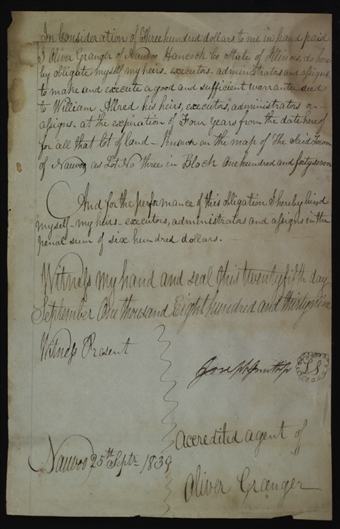 In consideration of Three hundred dollars to me in hand paid
I Oliver Granger of Nauvoo Hancock Co State of Illinois, do here
by obligate myself my heirs executors, administrators and assigns
to make and execute a good and sufficient warrantee deed
to William Allred his heirs, executors, administrators or
assigns at the expiration of Four years from the date hereof
for all that lot of land Known on the map of the said Town
of Nauvoo as Lot No three in Block One hundred and forty seven
And for the performance of this obligation I hereby bind
myself my heirs executors, administrators and assigns in the
penal sum of six hundred dollars.
Witness my hand and seal this twenty fifth day
September One thousand Eight hundred and thirty nine
Witness Present
Joseph Smith Jr LS
Accredited agent of
Nauvoo 25th Septr 1839
Oliver Granger